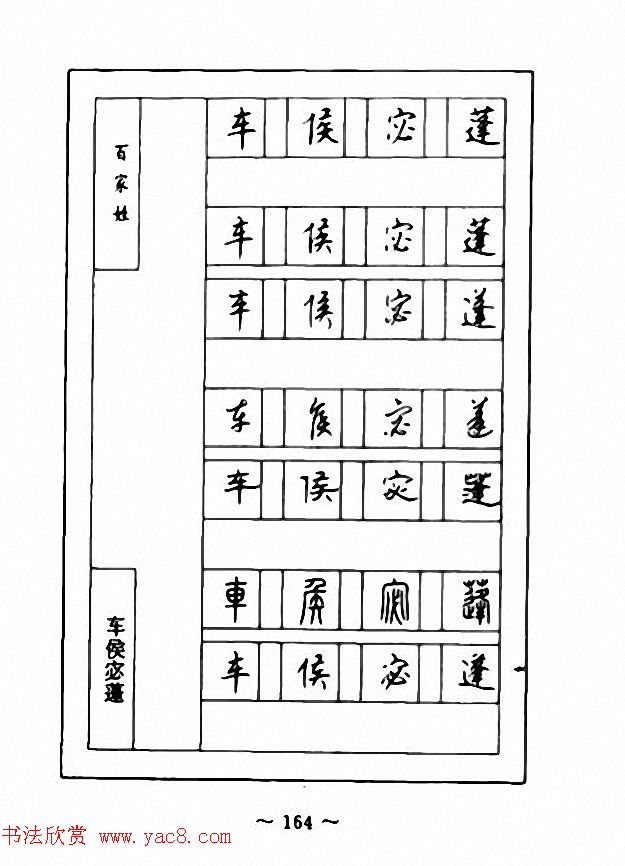 百家姓
车 侯 宓 蓬
车 侯 宓 蓬
车 侯 宓 蓬
车 侯 宓 蓬
车 侯 宓 蓬
車 侯 宓 蓬
车 侯 宓 蓬
车侯宓蓬
~ 164 ~
书法欣赏 www.yac8.com